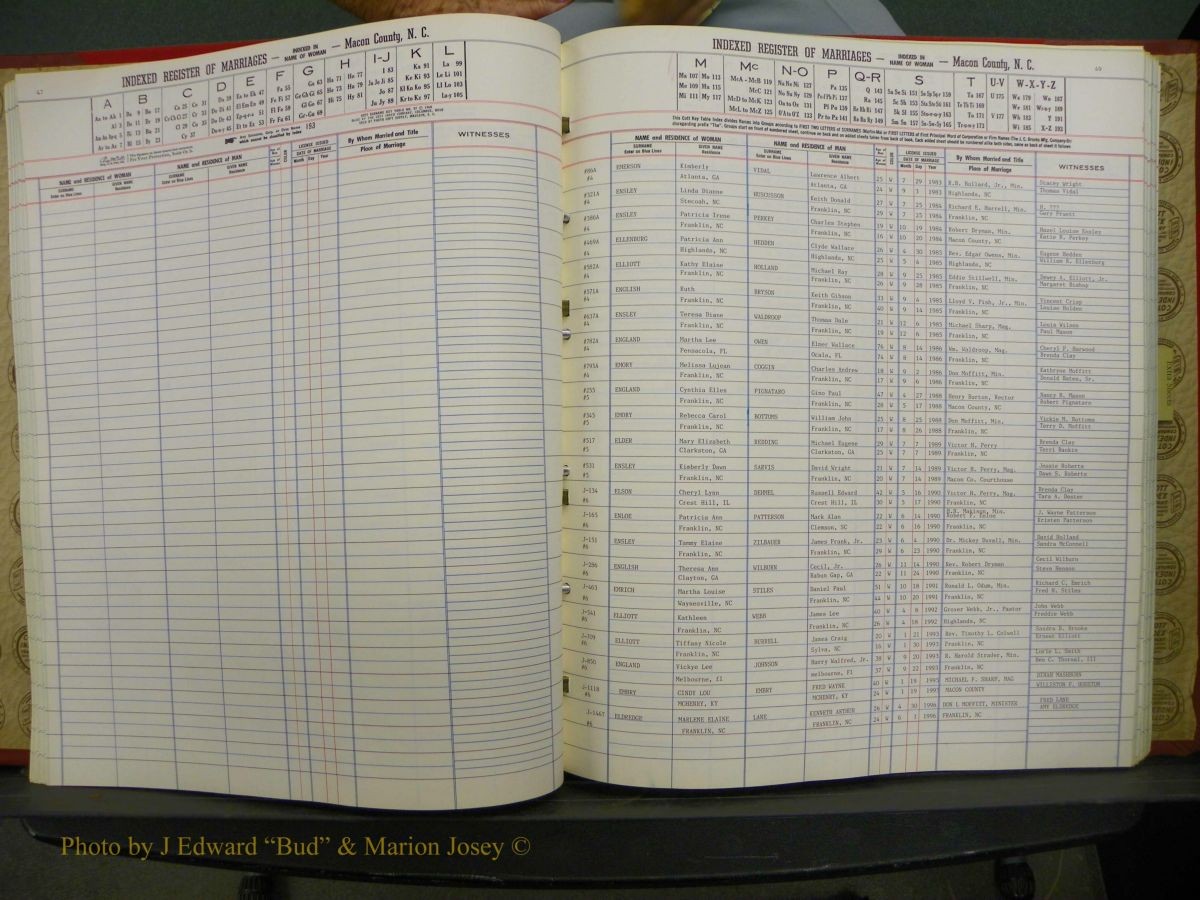 47
INDEXED REGISTER OF MARRIAGES — INDEXED IN NAME OF WOMAN — Macon County, N. C.
A B C D E F G H I-J K L
153
NAME and RESIDENCE OF WOMAN
NAME and RESIDENCE OF MAN
COLOR
LICENSE ISSUED
DATE OF MARRIAGE
Month Day Year
By Whom Married and Title
Place of Marriage
WITNESSES
SURNAME
Enter on Blue Lines
GIVEN NAME
Residence
SURNAME
Enter on Blue Lines
GIVEN NAME
Residence
INDEXED REGISTER OF MARRIAGES — INDEXED IN NAME OF WOMAN — Macon County, N. C.
M Mc N-O P Q-R S T U-V W-X-Y-Z
NAME and RESIDENCE OF WOMAN
NAME and RESIDENCE OF MAN
COLOR
LICENSE ISSUED
DATE OF MARRIAGE
Month Day Year
By Whom Married and Title
Place of Marriage
WITNESSES
#86A EMERSON Kimberly VIDAL Lawrence Albert 25 W 7 29 1983 R.B. Bullard, Jr., Min. Stacey Wright
#4 Atlanta, GA Atlanta, GA 24 W 9 3 1983 Highlands, NC Thomas Vidal
#321A ENSLEY Linda Dianne HUSCUSSON Keith Donald 27 W 7 25 1984 Richard E. Harrell, Min. H. ???
#4 Stecoah, NC Franklin, NC 29 W 7 25 1984 Franklin, NC Gary Pruett
#380A ENSLEY Patricia Irene PERKEY Charles Stephen 19 W 10 19 1984 Robert Dryman, Min. Hazel Louise Ensley
#4 Franklin, NC Franklin, NC 16 W 10 20 1984 Macon County, NC Katie R. Perkey
#469A ELLENBURG Patricia Ann HEDDEN Clyde Wallace 26 W 4 30 1985 Rev. Edgar Owens, Min. Eugene Hedden
#4 Highlands, NC Highlands, NC 25 W 5 4 1985 Highlands, NC William R. Ellenberg
#582A ELLIOTT Kathy Elaine HOLLAND Michael Ray 28 W 9 25 1985 Eddie Stillwell, Min. Dewey A. Elliott, Jr.
#4 Franklin, NC Franklin, NC 26 W 9 28 1985 Franklin, NC Margaret Bishop
#571A ENGLISH Ruth BRYSON Keith Gibson 33 W 9 4 1985 Lloyd V. Fish, Jr., Min. Vincent Crisp
#4 Franklin, NC Franklin, NC 40 W 9 14 1985 Franklin, NC Louise Holden
#637A ENSLEY Teresa Diane WALDROOP Thomas Dale 21 W 12 6 1985 Michael Sharp, Mag. Louis Wilson
#4 Franklin, NC Franklin, NC 19 W 12 6 1985 Franklin, NC Paul Mason
#782A ENGLAND Martha Lee OWEN Elmer Wallace 76 W 8 14 1986 Wm. Waldroop, Mag. Cheryl F. Harwood
#4 Pensacola, FL Ocala, FL W 8 14 1986 Franklin, NC Brenda Clay
#795A EMORY Melissa Lujean COGGIN Charles Andrew 18 W 9 2 1986 Don Moffitt, Min. Kathryne Moffitt
#4 Franklin, NC Franklin, NC 17 W 9 6 1986 Franklin, NC Donald Bates, Sr.
#255 ENGLAND Cynthia Ellen PIGNATARO Gino Paul 47 W 4 27 1988 Henry Burton, Rector Nancy B. Mason
#5 Franklin, NC Franklin, NC 28 W 5 17 1988 Macon County, NC Robert Pignataro
#345 EMORY Rebecca Carol BOTTOMS William John 25 W 8 25 1988 Don Moffitt, Min. Vickie M. Bottoms
#5 Franklin, NC Franklin, NC 17 W 8 26 1988 Franklin, NC Terry D. Moffitt
#517 ELDER Mary Elizabeth REDDING Michael Eugene 29 W 7 7 1989 Victor H. Perry Brenda Clay
#5 Clarkston, GA Clarkston, GA 25 W 7 7 1989 Franklin, NC Terri Rankin
#531 ENSLEY Kimberly Dawn SARVIS David Wright 21 W 7 14 1989 Victor H. Perry, Mag. Jessie Roberts
#5 Franklin, NC Franklin, NC 20 W 7 14 1989 Macon Co. Courthouse Dawn S. Roberts
J-134 ELSON Cheryl Lynn DEHMEL Russell Edward 42 W 5 16 1990 Victor H. Perry, Mag. Brenda Clay
#6 Crest Hill, IL Crest Hill, IL 30 W 5 17 1990 Franklin, NC Tara A. Dexter
J-165 ENLOE Patricia Ann PATTERSON Mark Alan 22 W 6 14 1990 Robert F. Enloe J. Wayne Patterson
#6 Franklin, NC Clemson, SC 22 W 6 16 1990 Franklin, NC Kristen Patterson
J-151 ENSLEY Tammy Elaine ZILBAUER James Frank, Jr. 23 W 6 4 1990 Dr. Mickey Duvall, Min. David Holland
#6 Franklin, NC Franklin, NC 29 W 6 23 1990 Franklin, NC Sandra McConnell
J-286 ENGLISH Theresa Ann WILBURN Cecil, Jr. 26 W 11 14 1990 Rev. Robert Dryman Cecil Wilburn
#6 Clayton, GA Rabun Gap, GA 22 W 11 24 1990 Franklin, NC Steve Henson
J-463 EMRICH Martha Louise STILES Daniel Paul 51 W 10 18 1991 Ronald L. Odum, Min. Richard C. Emrich
#6 Waynesville, NC Franklin, NC 44 W 10 20 1991 Franklin, NC Fred H. Stiles
J-541 ELLIOTT Kathleen WEBB James Lee 40 W 4 8 1992 Grover Webb, Jr., Pastor John Webb
#6 Franklin, NC Franklin, NC 26 W 4 18 1992 Highlands, NC Freddie Webb
J-709 ELLIOTT Tiffany Nicole BURRELL James Craig 20 W 1 21 1993 Rev. Timothy L. Colwell Sandra D. Brooks
#6 Franklin, NC Sylva, NC 16 W 1 30 1993 Franklin, NC Ernest Elliott
J-850 ENGLAND Vickye Lee JOHNSON Harry Walfred, Jr. 38 W 9 20 1993 R. Harold Strader, Min. Lorie L. Smith
#6 Melbourne, fl melbourne, Fl 37 W 9 22 1993 Franklin, NC Ben C. Thornal, III
J-1118 EMBRY CINDY LOU EMBRY FRED WAYNE 40 W 1 19 1995 MICHAEL F. SHARP, MAG DINAH MASHBURN
#6 MCHENRY, KY MCHENRY, KY 24 W 1 19 1995 MACON COUNTY WILLISTON C. HOUSTON
J-1467 ELDREDGE MARLENE ELAINE LANE KENNETH ARTHUR 26 W 4 30 1996 DON L MOFFITT, MINISTER FRED LANE
#6 FRANKLIN, NC FRANKLIN, NC 24 W 6 1 1996 FRANKLIN, NC AMY ELDREDGE
Photo by J Edward “Bud” & Marion Josey ©